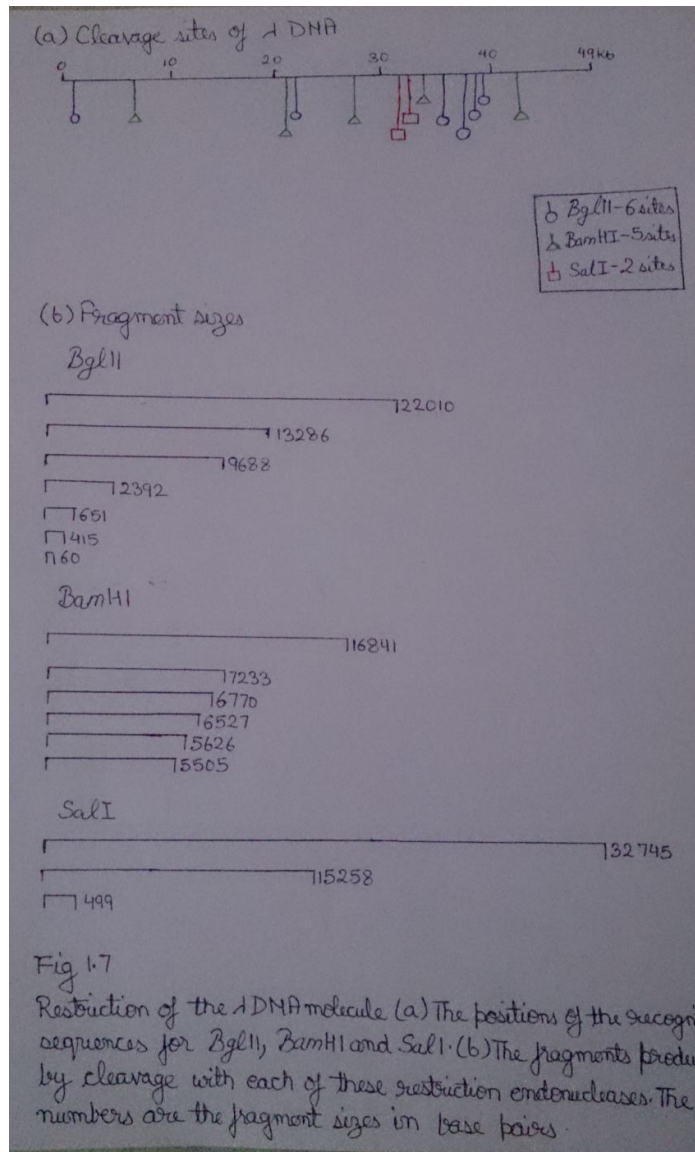 (a) Cleavage sites of λ DNA
0 10 20 30 40 49 kb
BglII-6 sites
BamHI-5 sites
SalI-2 sites
(b) Fragment sizes
BglII
22010
13286
9688
2392
651
415
60
BamHI
16841
7233
6770
6527
5626
5505
SalI
32745
15258
499
Fig 1.7
Restriction of the λ DNA molecule (a) The positions of the recogni
sequences for BglII, BamHI and SalI. (b) The fragments produ
by cleavage with each of these restriction endonucleases. The
numbers are the fragment sizes in base pairs.